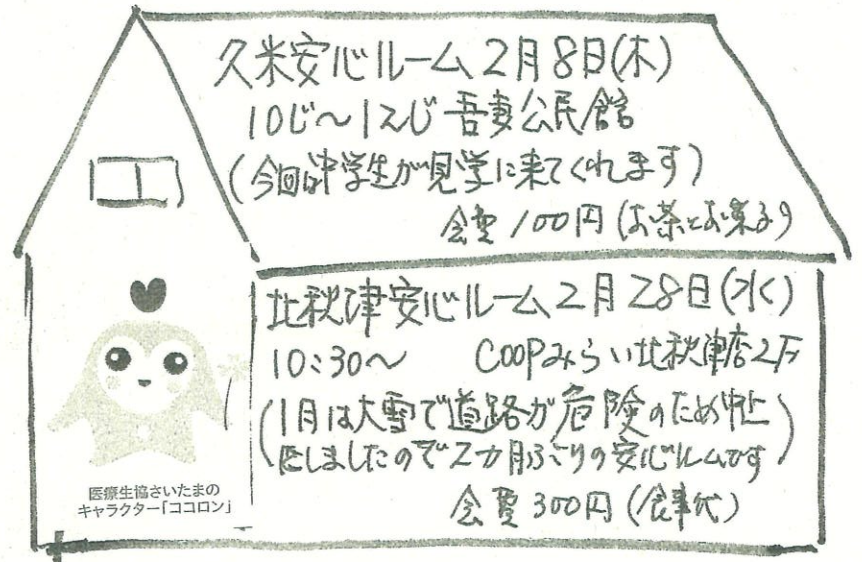 久米安心ルーム 2月8日(木)
10じ～12じ 吾妻公民館
(今回は中学生が見学に来てくれます)
会費 100円 (お茶とお菓子)
北秋津安心ルーム 2月28日(水)
10:30～ COOPみらい北秋津店2F
(1月は大雪で道路が危険のため中止
にしましたので2カ月ぶりの安心ルームです)
会費 300円 (食事代)
医療生協さいたまの
キャラクター「ココロン」